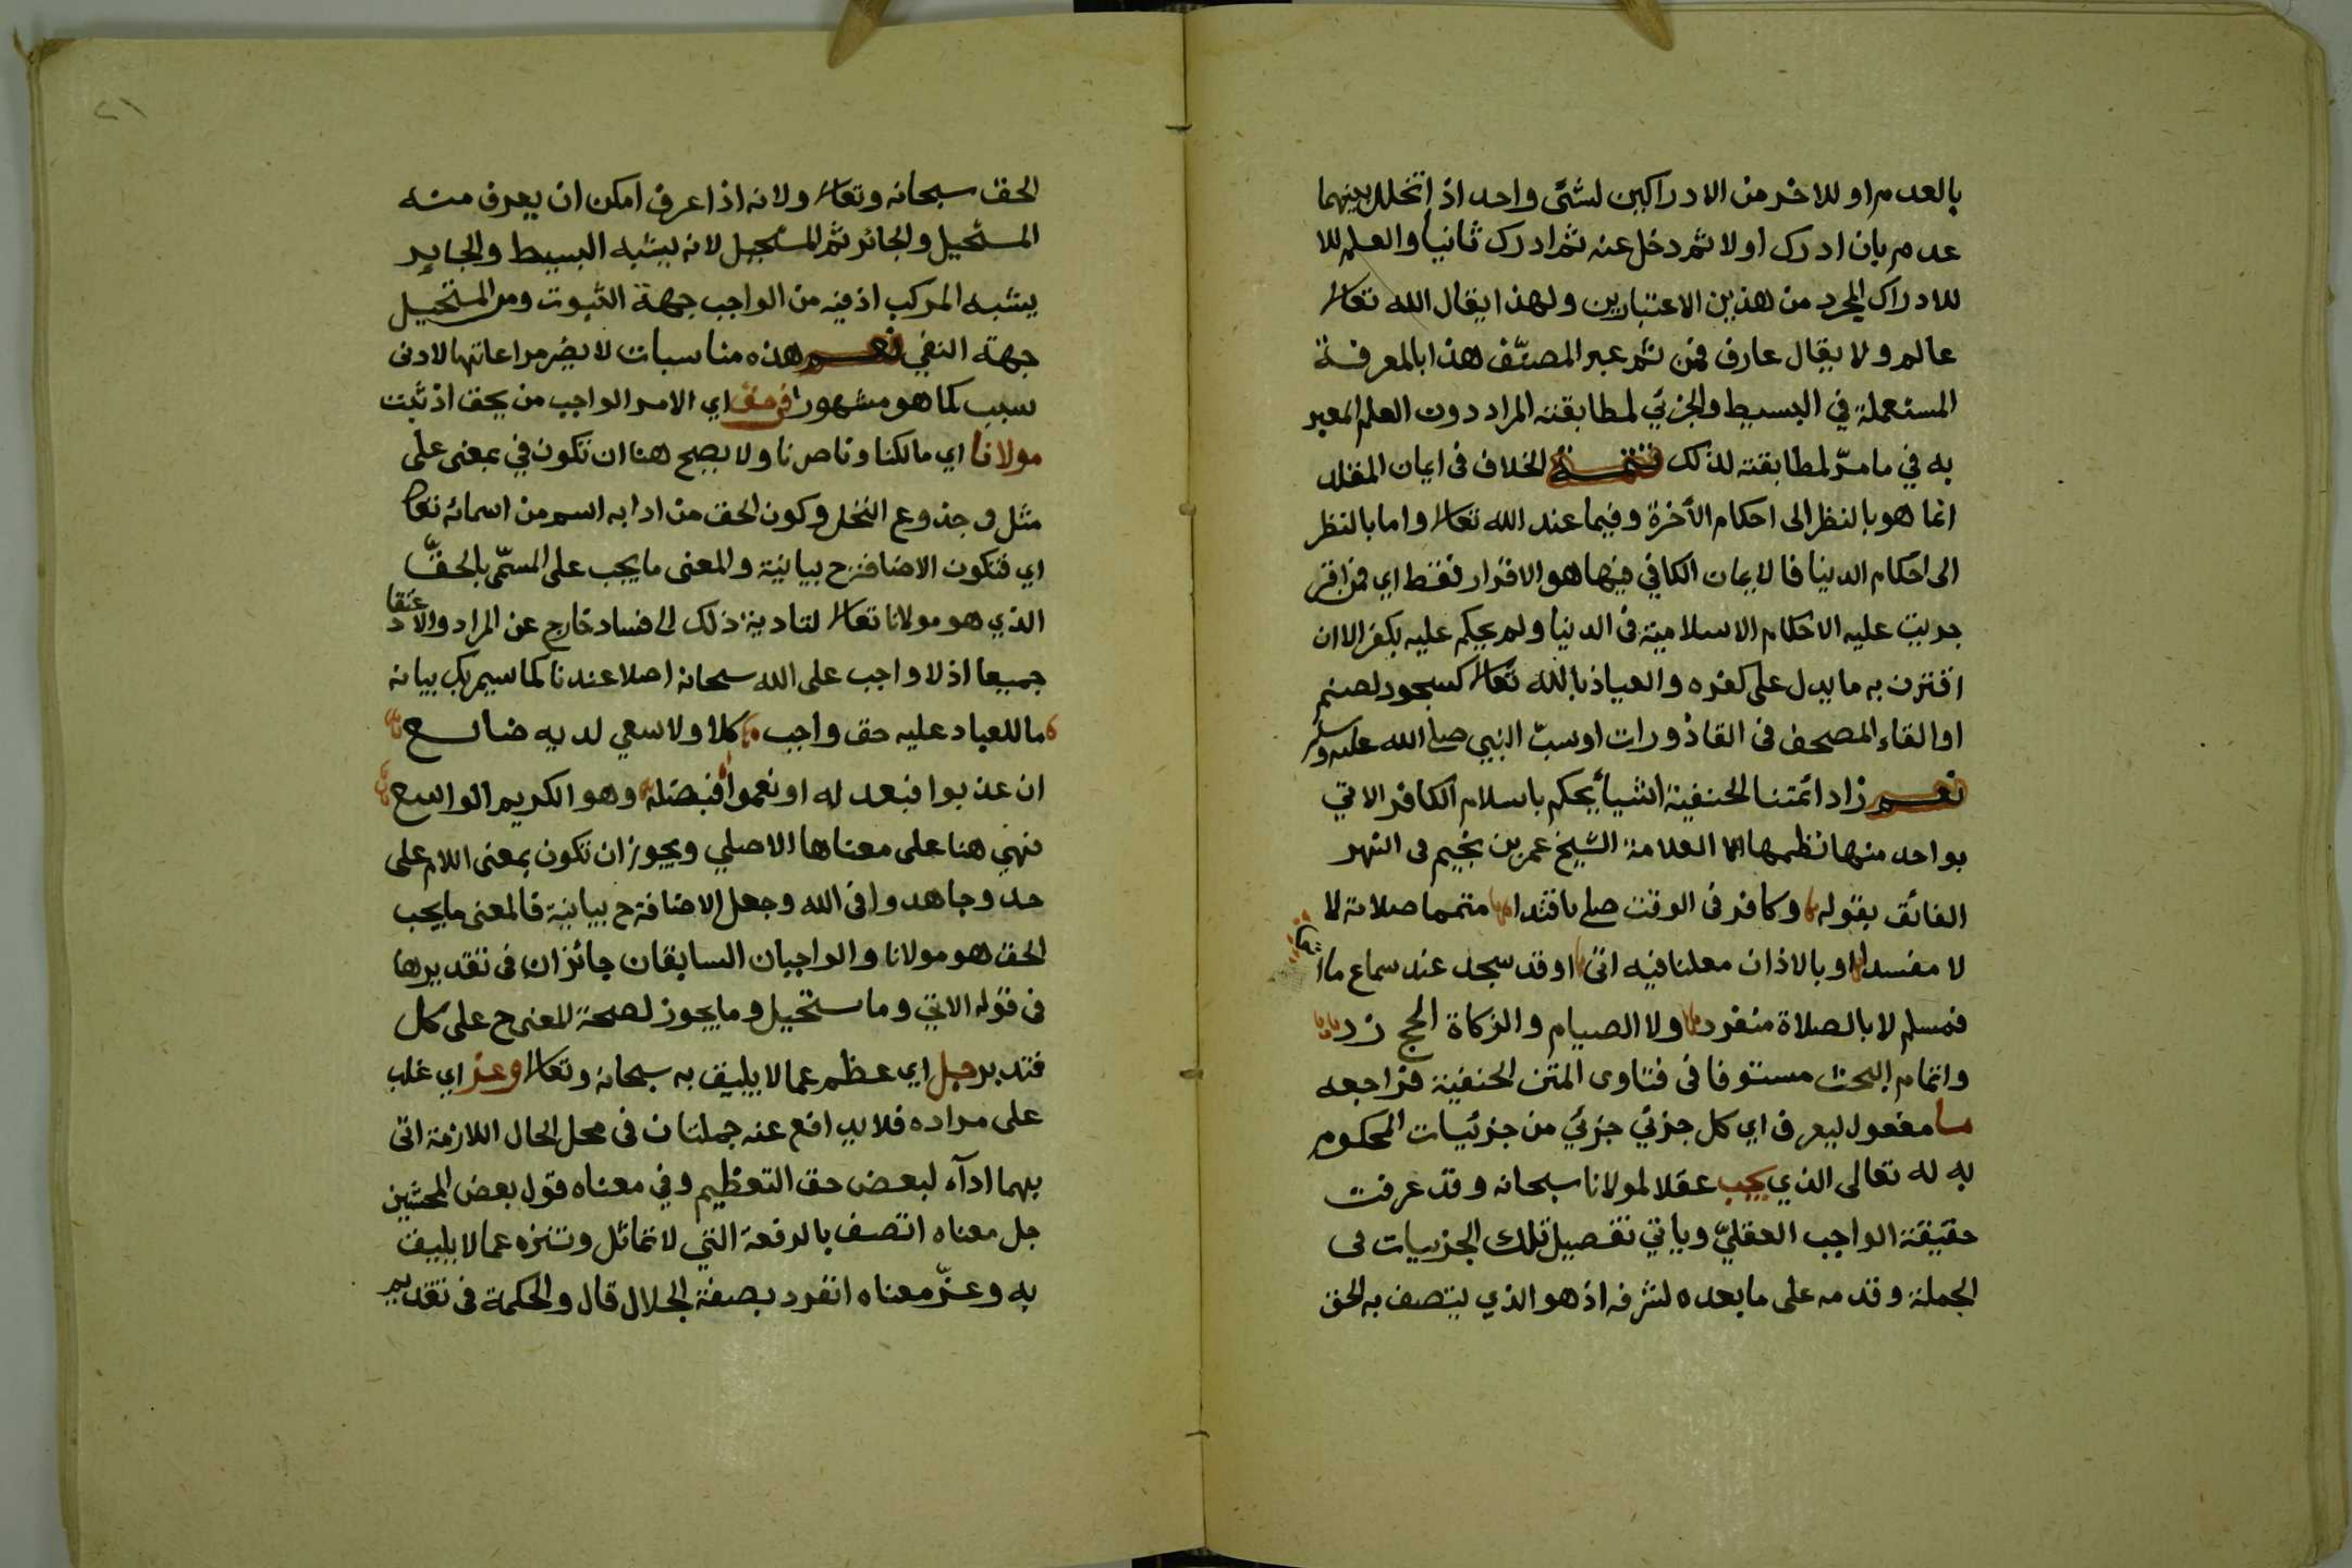 بالعدم او للاخر من الادراكين لشئ واحد اذ اتخلل بينهما
عدم بان ادرك اولا ثم دخل عنه ثم ادرك ثانيا والعلم للا
للادراك المجرد من هذين الاعتبارين ولهذا يقال الله تعالى
عالم ولا يقال عارف فمن ثم عبر المصنّف هذا بالمعرفة
المستعملة في البسيط والجزئي لمطابقته المراد دون العلم المعبر
به في ما مرّ لمطابقته لذلك تتمة الخلاف فى ايمان المقلد
انما هو بالنظر الى احكام الأخرة وفيما عند الله تعالى واما بالنظر
الى احكام الدنيا فالايمان الكافي فيها هو الاقرار فقط اي فمن اقر
جريت عليه الاحكام الاسلامية فى الدنيا ولم يحكم عليه بكفر الا ان
اقترن به ما يدل على كفره والعياذ بالله تعالى كسجود لصنم
او القاء المصحف فى القاذورات او سبّ النبي صلى الله عليه وسلم
نعم زاد ائمتنا الحنفية اشيأ يحكم باسلام الكافر الاتي
بواحد منها نظمها العلامة الشيخ عمر بن نجيم فى النهر
الفائق بقوله وكافر فى الوقت صلى باقتدا متمما صلاته لا
لا مفسدا او بالاذان معلنا فيه اتى او قد سجد عند سماع ما
فمسلم لا بالصلاة منفرد ولا الصيام والزكاة الحج زد
واتمام البحث مستوفا فى فتاوى المتن الحنفية فراجعه
ما مفعول ليعرف اي كل جزئي جزئي من جزئيات المحكوم
به له تعالى الذي يجب عقلا لمولانا سبحانه وقد عرفت
حقيقة الواجب العقليّ وياتي تفصيل تلك الجزييات فى
الجملة وقدمه على ما بعده لشرفه اذ هو الذي يتصف به الحق
٢١
الحق سبحانه وتعالى ولانه اذا عرف امكن ان يعرف منه
المستحيل والجائز ثم المستحيل لانه يشبه البسيط والجايز
يشبه المركب اذ فيه من الواجب جهة الثبوت ومن المستحيل
جهة النفي نعم هذه مناسبات لا يضر مراعاتها لادنى
سبب كما هو مشهور في حق اي الامر الواجب من يحق اذ ثبت
مولانا اي مالكنا وناصرنا ولا يصح هنا ان تكون في بمعنى على
مثل في جذوع النخل وكون الحق من ادا به اسم من اسمائه تعالى
اي فتكون الاضافة ح بيانية والمعنى ما يجب على المسمّى بالحقّ
الذي هو مولانا تعالى لتادية ذلك الى فساد خارج عن المراد والاعتقاد
جميعا اذ لا واجب على الله سبحانه اصلا عندنا كما سيمر بك بيانه
ما للعباد عليه حق واجب كلا ولا سعي لديه ضائع
ان عذبوا فبعدله او نعموا فبفضله وهو الكريم الواسع
فهي هنا على معناها الاصلي ويجوز ان تكون بمعنى اللام على
حد وجاهدوا فى الله وجعل الاضافة ح بيانية فالمعنى ما يجب
الحق هو مولانا والواجبان السابقان جائزان فى تقديرها
فى قوله الاتي وما يستحيل وما يجوز لصحة المعنى ح على كل
فتدبر جل اي عظم عما لا يليق به سبحانه وتعالى وعز اي غلب
على مراده فلا يدافع عنه جملتان فى محل الحال اللازمة اتى
بهما ادآء لبعض حق التعظيم وفي معناه قول بعض المحشين
جل معناه اتصف بالرفعة التي لا تماثل وتنزه عما لا يليق
به وعزّ معناه انفرد بصفة الجلال قال والحكمة فى تقديم